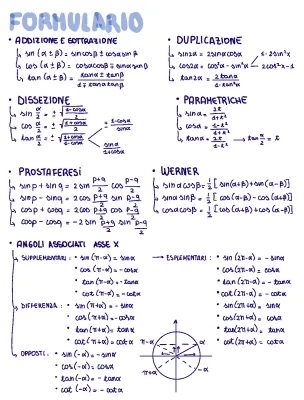 FORMULARIO
• ADDIZIONE E SOTTRAZIONE
sin (α ± β) = sinαcosβ ± cosαsinβ
cos (α ± β) = cosαcosβ ∓ sinαsinβ
tan (α ± β) = tanα ± tanβ / 1 ∓ tanαtanβ
• DUPLICAZIONE
sin2α = 2sinαcosα
cos2α = cos²α - sin²α
1-2sin²α
2cos²α-1
tan2α = 2tanα / 1-tan²α
• BISEZIONE
sin α/2 = ± √ 1-cosα / 2
cos α/2 = ± √ 1+cosα / 2
tan α/2 = ± √ 1-cosα / 1+cosα
1-cosα / sinα
sinα / 1+cosα
• PARAMETRICHE
sinα = 2t / 1+t²
cosα = 1-t² / 1+t²
tanα = 2t / 1-t² → tan α/2 = t
• PROSTAFERESI
sinp + sinq = 2sin p+q/2 cos p-q/2
sinp - sinq = 2cos p+q/2 sin p-q/2
cosp + cosq = 2cos p+q/2 cos p-q/2
cosp - cosq = -2sin p+q/2 sin p-q/2
• WERNER
sinαcosβ = 1/2 [sin(α+β)+sin(α-β)]
sinαsinβ = 1/2 [cos(α-β)-cos(α+β)]
cosαcosβ = 1/2 [cos(α+β)+cos(α-β)]
• ANGOLI ASSOCIATI ASSE X
SUPPLEMENTARI: • sin (π-α) = sinα
• cos (π-α) = -cosα
• tan (π-α) = -tanα
• cot (π-α) = -cotα
DIFFERENZA: • sin (π+α) = -sinα
• cos (π+α) = -cosα
• tan (π+α) = tanα
• cot (π+α) = cotα
OPPOSTI: • sin (-α) = -sinα
• cos (-α) = cosα
• tan (-α) = -tanα
• cot (-α) = -cotα
→ ESPLEMENTARI: • sin (2π-α) = -sinα
• cos (2π-α) = cosα
• tan (2π-α) = -tanα
• cot (2π-α) = -cotα
• sin (2π+α) = sinα
• cos (2π+α) = cosα
• tan (2π+α) = tanα
• cot (2π+α) = cotα
π-α
α
π+α
-α